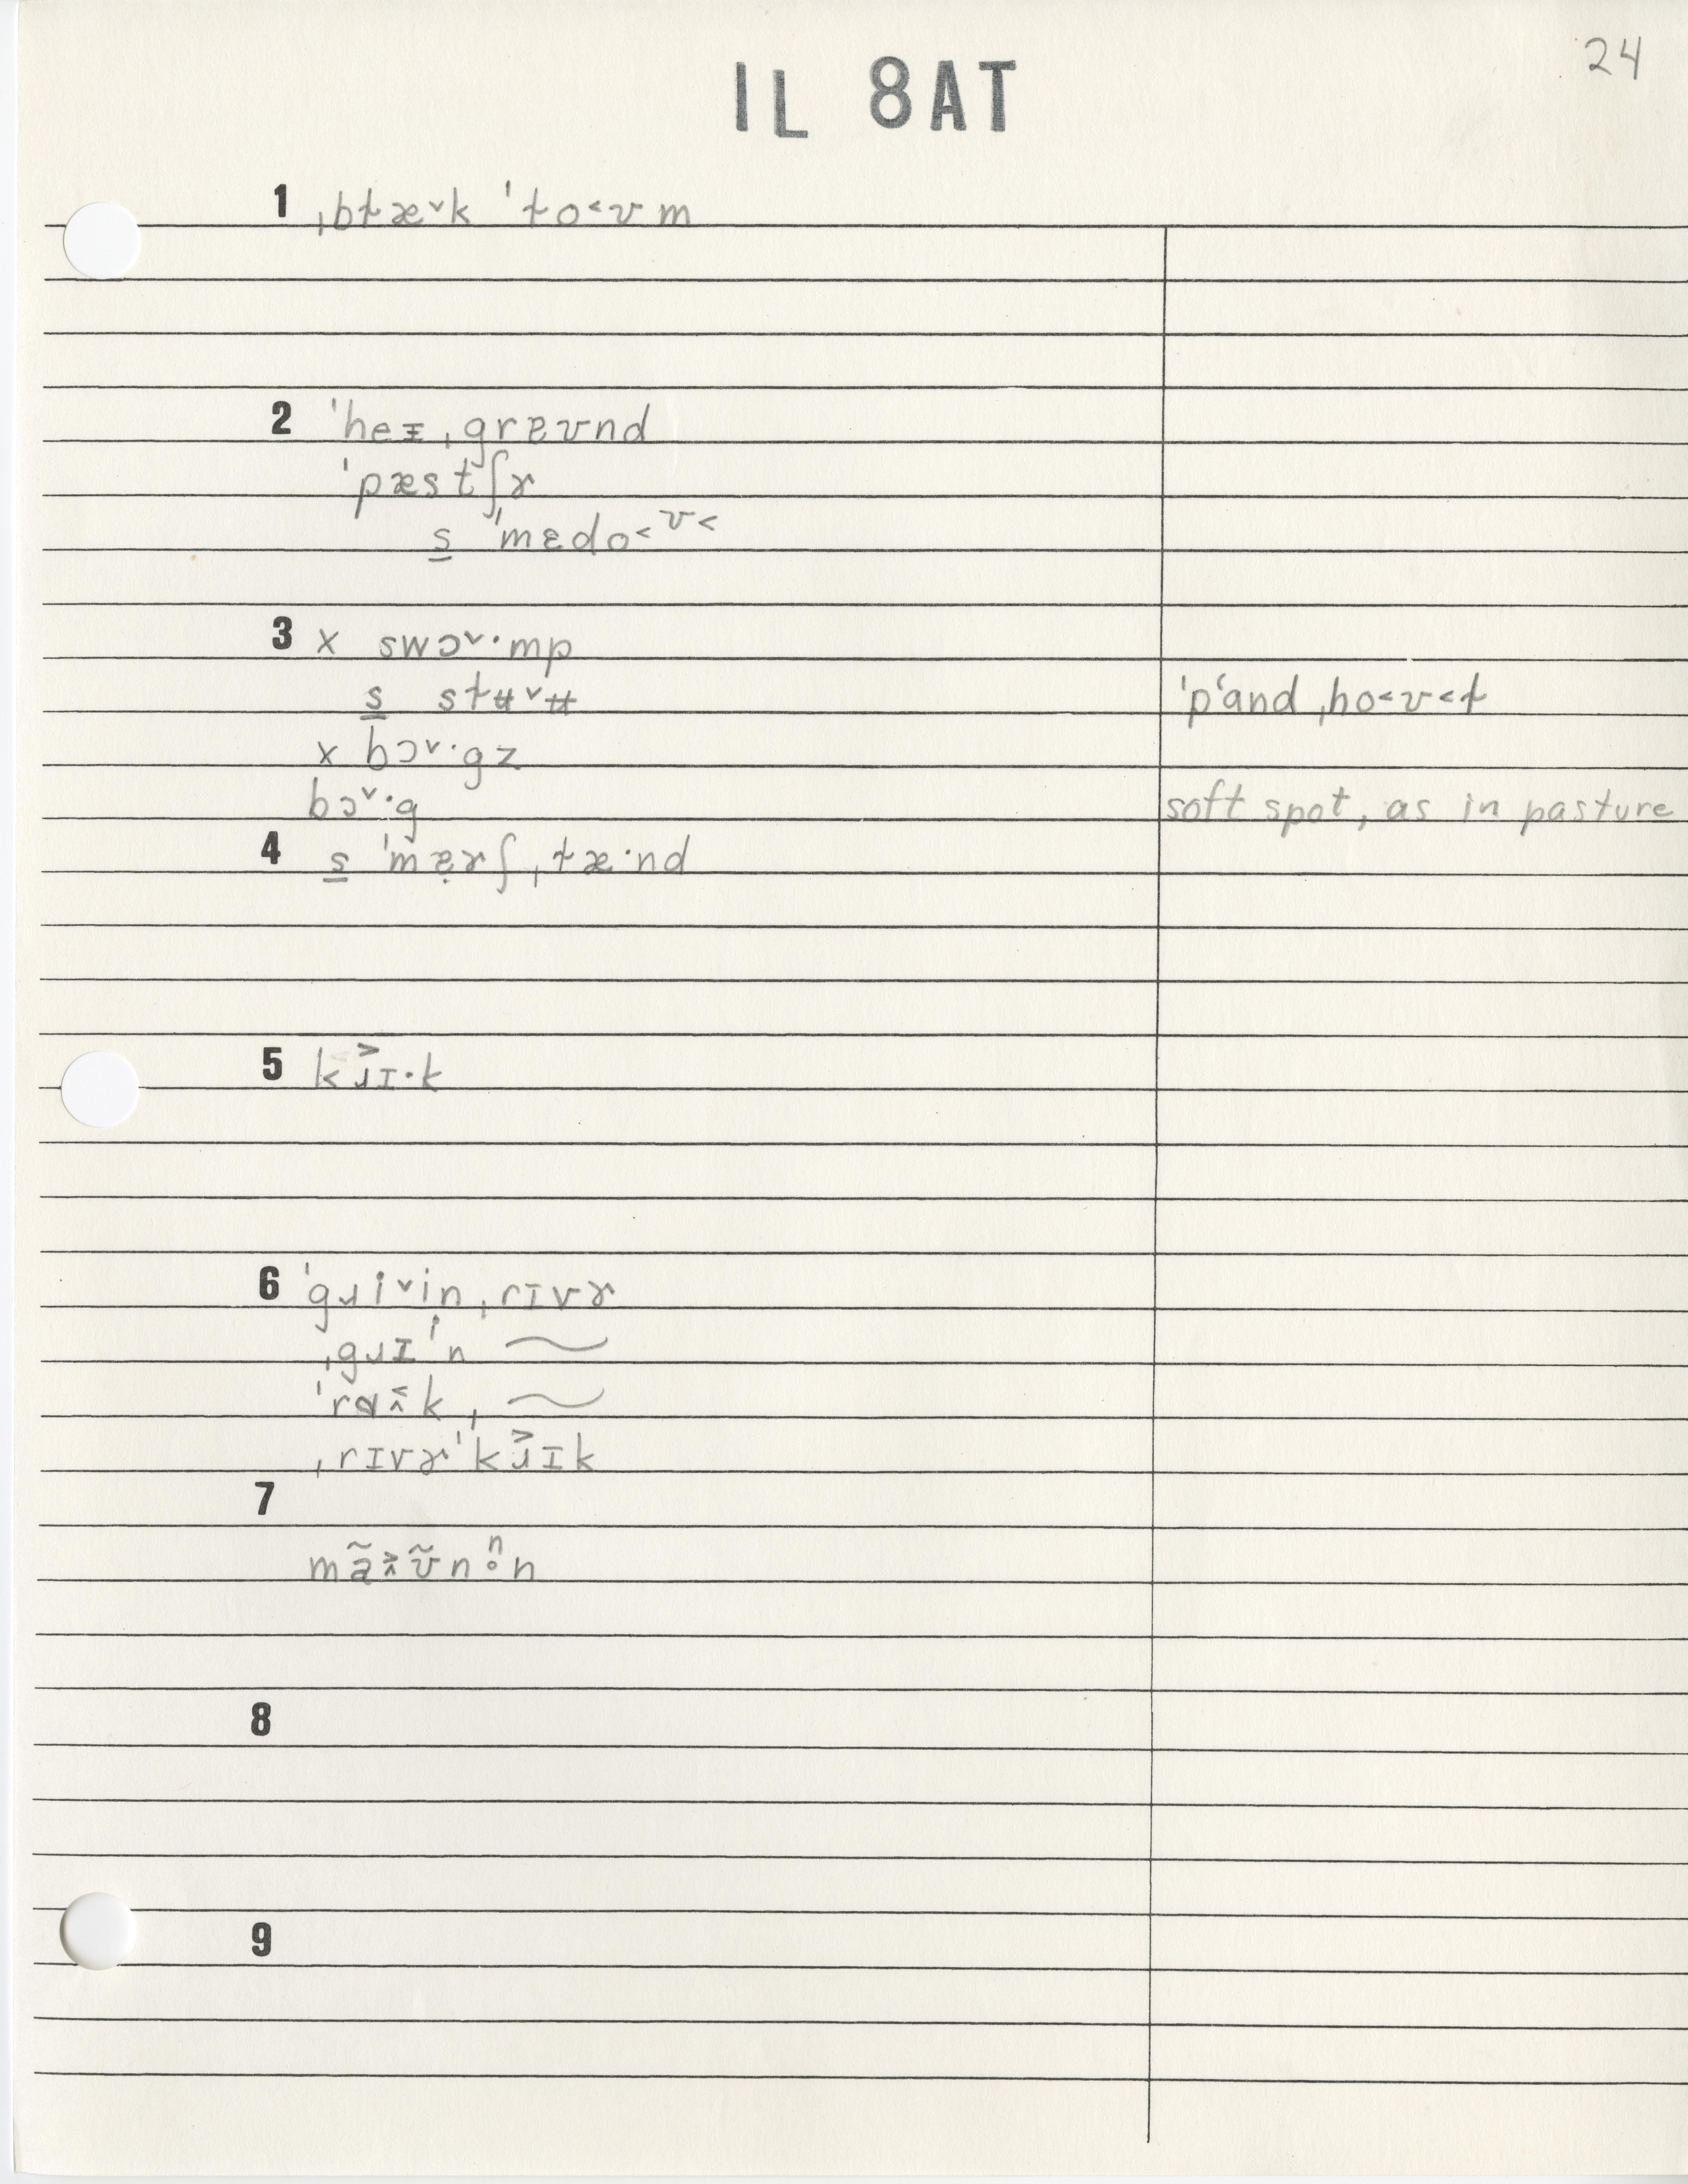 24
IL 8AT
1 ˌbɫæ˅k ˈɫo˂ʊm
2 ˈheᵻˌgrɐʊnd
ˈpæstʃɚ
s̲ ˈmɛdo˂ʊ˂
3 x swɔ˅·mp
s̲ sɫʉ˅ʉ ˈpʻandˌho˂ʊ˂ɫ
x bɔ˅·gz
bɔ˅·g soft spot, as in pasture
4 s̲ ˈmɐ̣ɚʃˌɫæ·nd
5 kɹ˃ɪ·k
6 ˈgɹi˅inˌrɪvɚ
ˌgɹɪⁱn ⁓
ˈrɑ˂˄k ˌ⁓
ˌrɪvɚˈkɹ˃ɪk
7
mã˃˄ʊ̃nₒⁿn
8
9